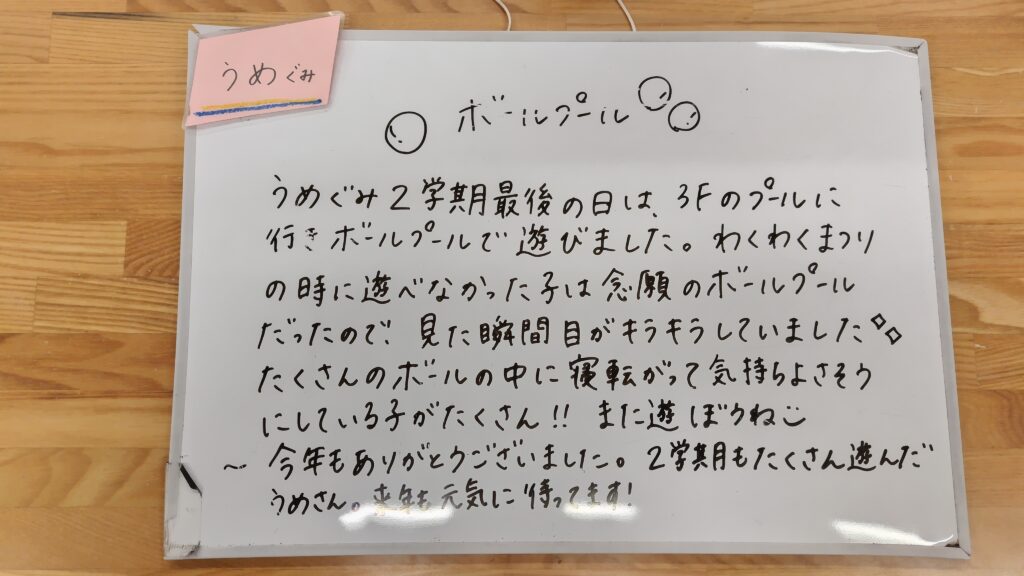 うめぐみ
ボールプール
うめぐみ2学期最後の日は、3Fのプールに
行きボールプールで遊びました。わくわくまつり
の時に遊べなかった子は念願のボールプール
だったので、見た瞬間目がキラキラしていました
たくさんのボールの中に寝転がって気持ちよさそう
にしている子がたくさん!! また遊ぼうね
~ 今年もありがとうございました。2学期もたくさん遊んだ
うめさん。来年も元気に待ってます!